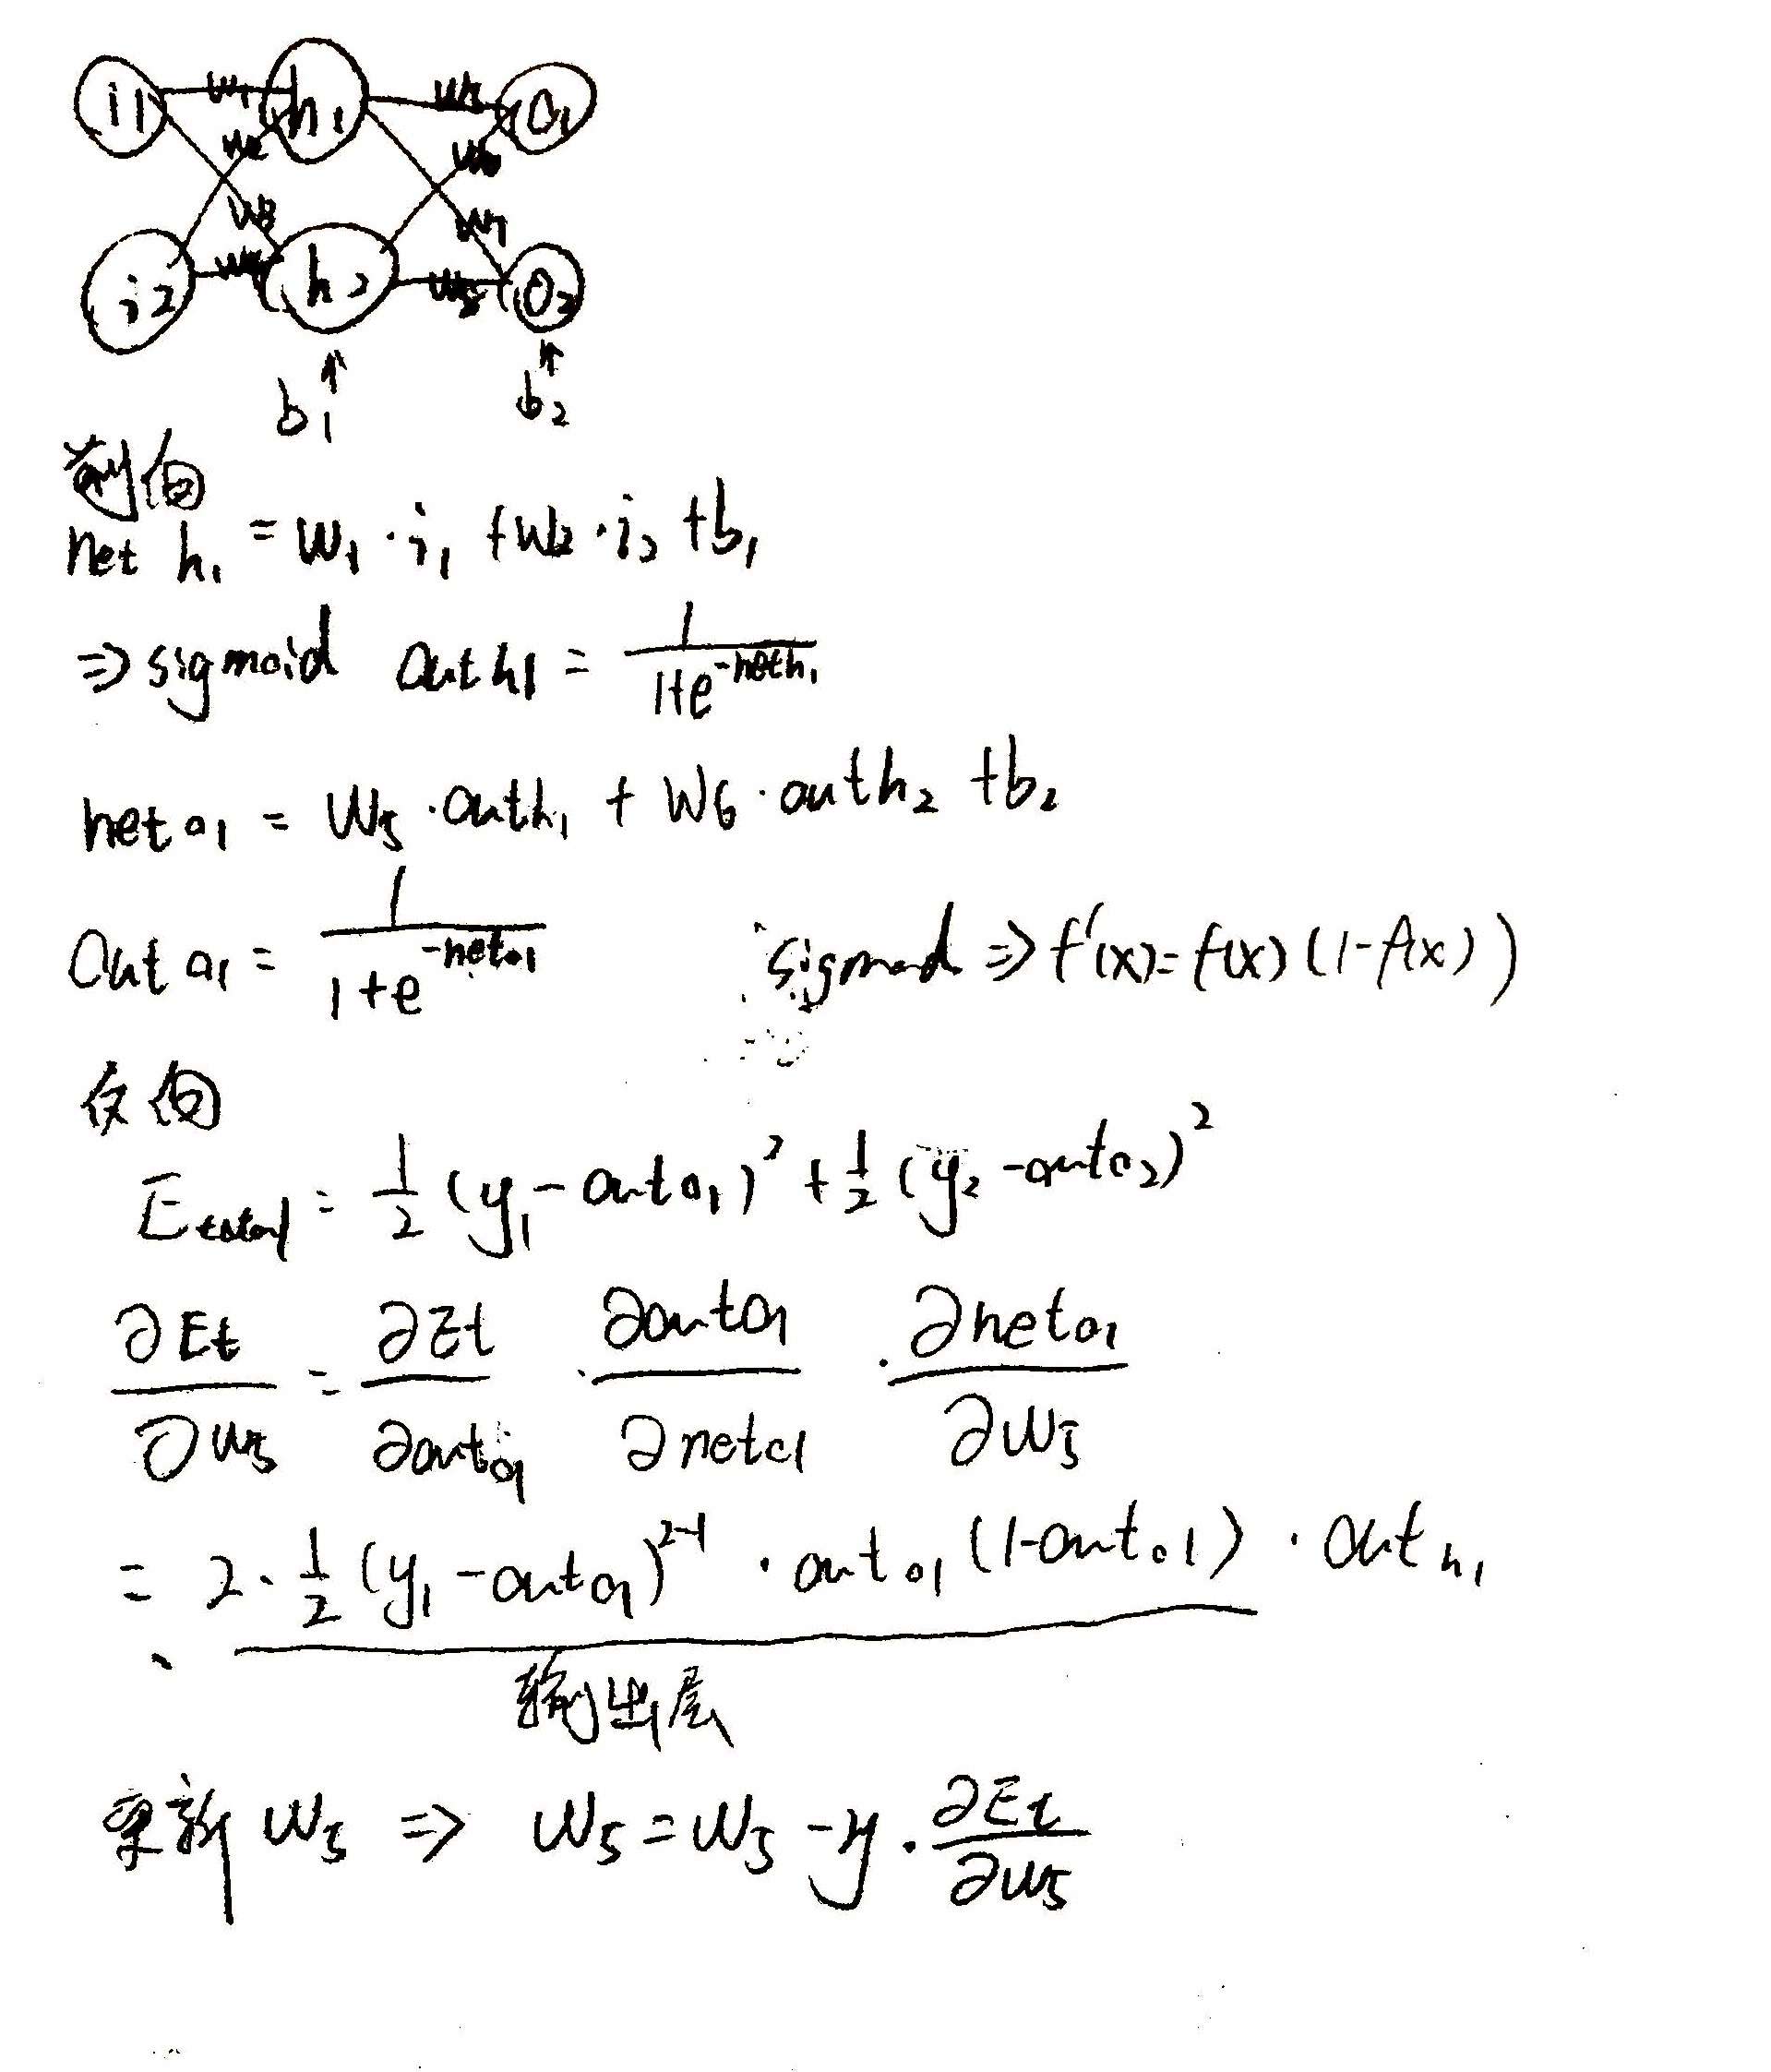 i1 w1 h1 w5 o1
w2 w6
w3 w7
i2 w4 h2 w8 o2
↑ ↑
b1 b2
前向
net h1 = w1·i1 + w2·i2 + b1
⇒ sigmoid out h1 = 1/(1+e^(-net h1))
net o1 = w5·out h1 + w6·out h2 + b2
out o1 = 1/(1+e^(-net o1)) sigmoid ⇒ f'(x)=f(x)(1-f(x))
反向
E total = 1/2 (y1 - out o1)^2 + 1/2 (y2 - out o2)^2
∂Et/∂w5 = ∂Et/∂out o1 · ∂out o1/∂net o1 · ∂net o1/∂w5
= 2·1/2 (y1 - out o1)^(2-1) · out o1 (1-out o1) · out h1
输出层
更新 w5 ⇒ w5 = w5 - η·∂Et/∂w5